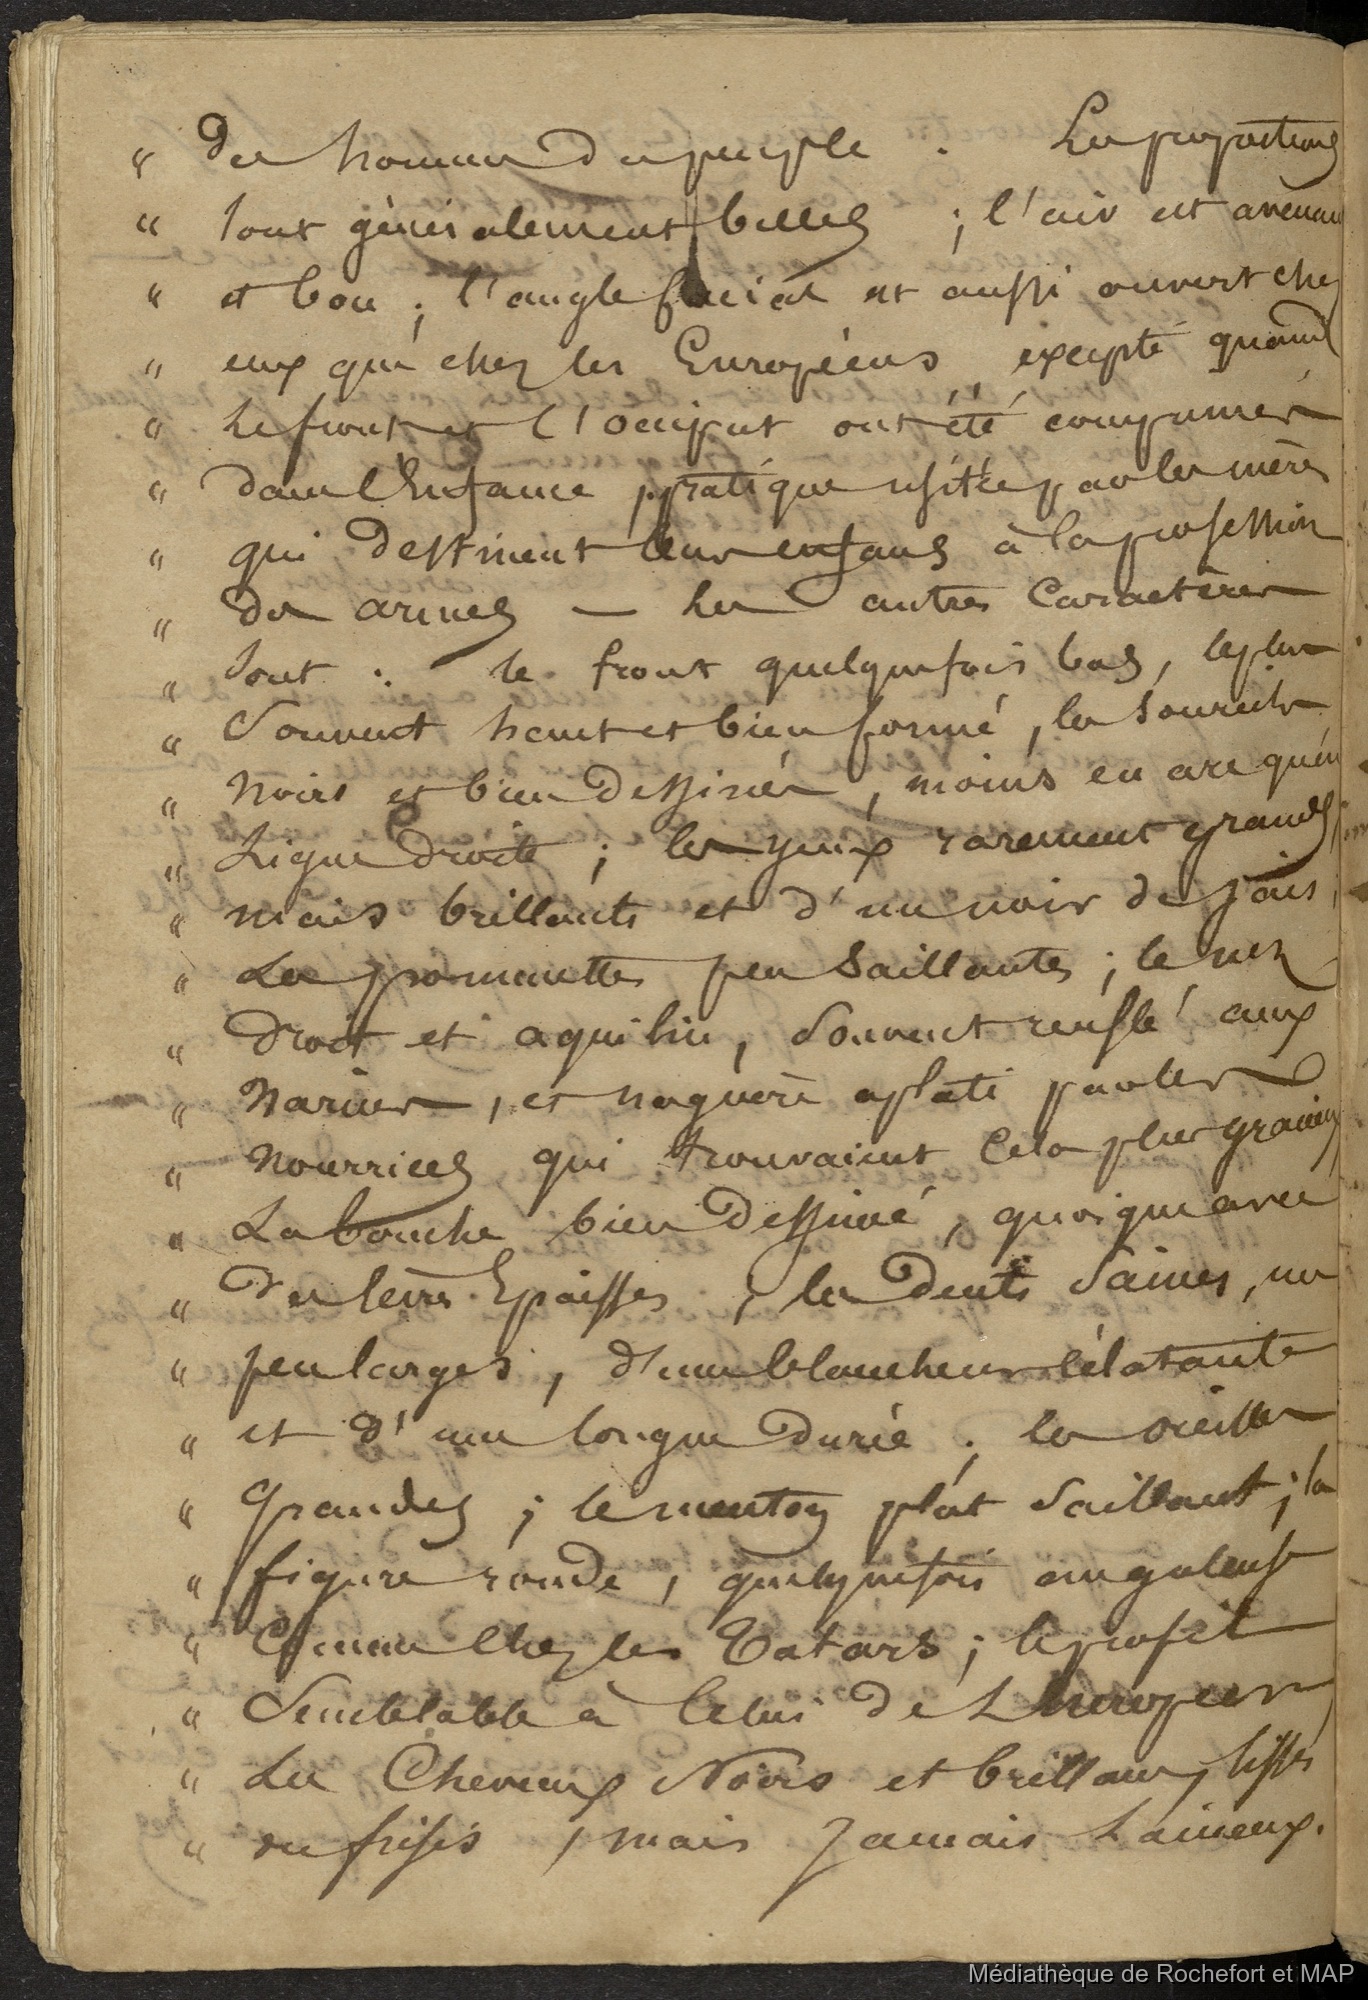 " des hommes du peuple . Les proportions
" sont généralement belles ; l'air est avenant
" et bon ; l'angle facial est aussi ouvert chez
" eux que chez les Européens excepté quand
" le front et l'occiput ont été comprimés
" dans l'Enfance , pratique usitée par les mères
" qui destinent leurs enfans à la profession
" des armes — les autres Caractères
" sont : le front quelquefois bas, le plus
" souvent haut et bien formé, les sourcils
" noirs et bien dessinés, moins en arc qu'en
" Ligne droite ; les yeux rarement grands,
" mais brillants et d'un noir de jais ;
" Les pommettes peu saillantes ; le nez
" droit et aquilin, souvent renflé aux
" Narines, et naguère aplati par les
" nourrices qui trouvaient cela plus gracieux,
" La bouche bien dessiné, quoique avec
" des levres Epaisses ; les dents saines, un
" peu larges, d'une blancheur éclatante
" et d'une longue durée ; les oreilles
" Grandes ; le menton plat saillant ; la
" figure ronde, quelquefois anguleuse
" Comme Chez les Tatars ; le profil
" Semblable à Celui de L'Européen,
" Les Cheveux Noirs et brillans, lisses
" ou frisés , mais Jamais Laineux.
Médiathèque de Rochefort et MAP